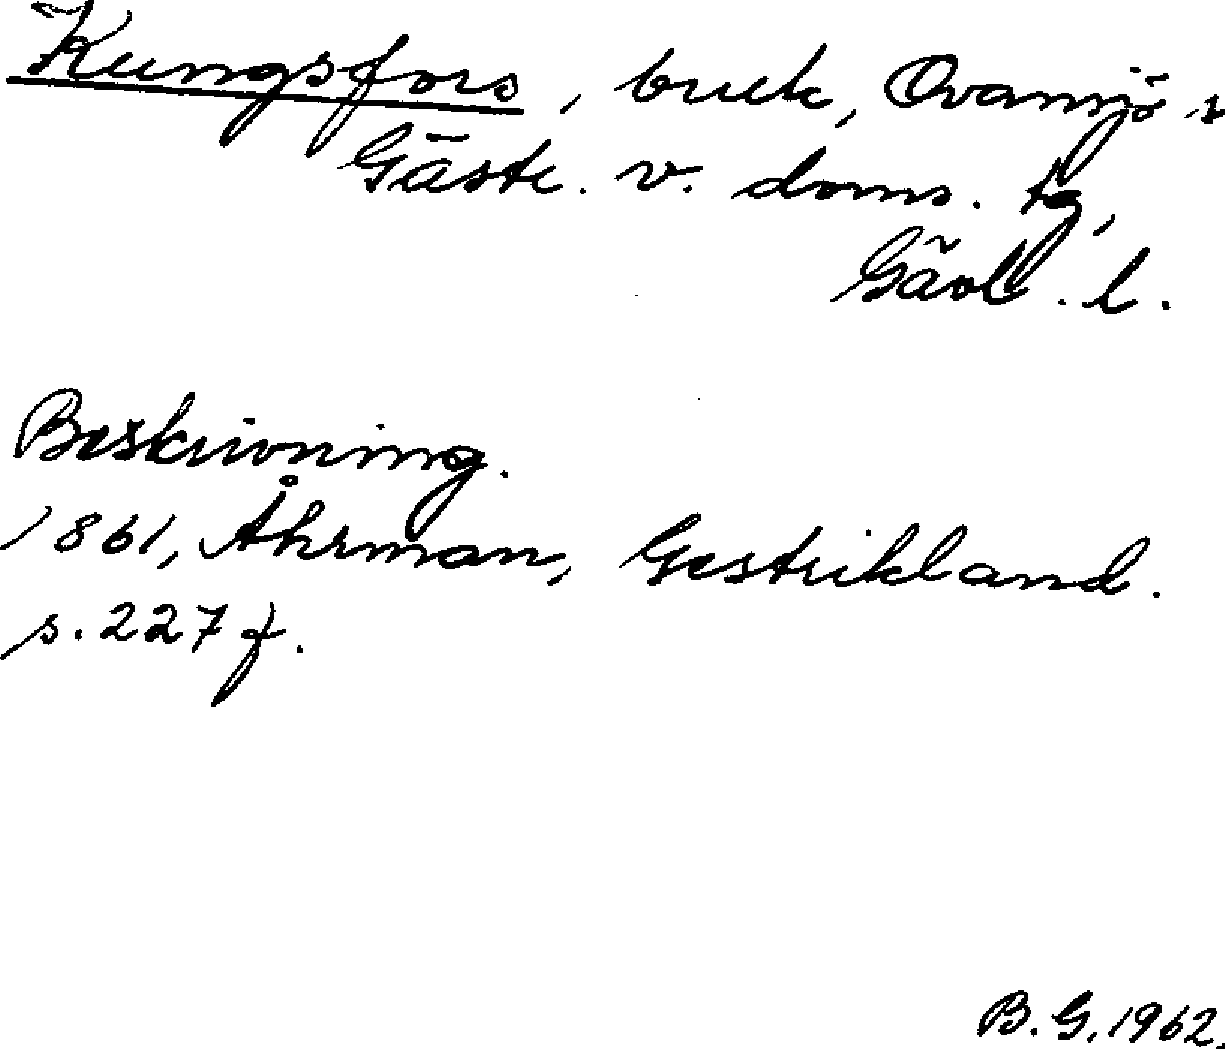 Kungsfors, bruk, Ovansjö s
Gästr. v. doms. tg,
Gävl. l.
Beskrivning.
1861, Åhrman, Gestrikland.
s. 227 f.
B. G. 1962.